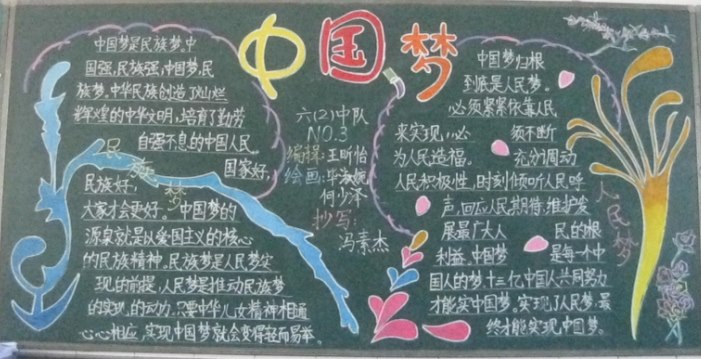 中国梦
中国梦是民族梦。中
国强,民族强,中国梦,民
族梦。中华民族创造了灿烂
辉煌的中华文明,培育了勤劳
自强不息的中国人民。
国家好,
民族好,
大家才会更好。中国梦的
源泉就是以爱国主义的核心
的民族精神。民族梦是人民梦实
现的前提,人民梦是推动民族梦
的实现,的动力。只要中华儿女精神相通
心心相应,实现中国梦就会变得轻而易举。
民族梦
六(2)中队
NO.3
编辑:王昕怡
绘画:华淑婉
何少泽
抄写:
冯素杰
中国梦归根
到底是人民梦。
必须紧紧依靠人民
来实现,必 须不断
为人民造福。 充分调动
人民积极性,时刻倾听人民呼
声,回应人民期待,维护发
展最广大人 民的根
利益。中国梦 是每一个中
国人的梦,十三亿中国人共同努力
才能实中国梦。实现了人民梦,最
终才能实现中国梦。
人民梦